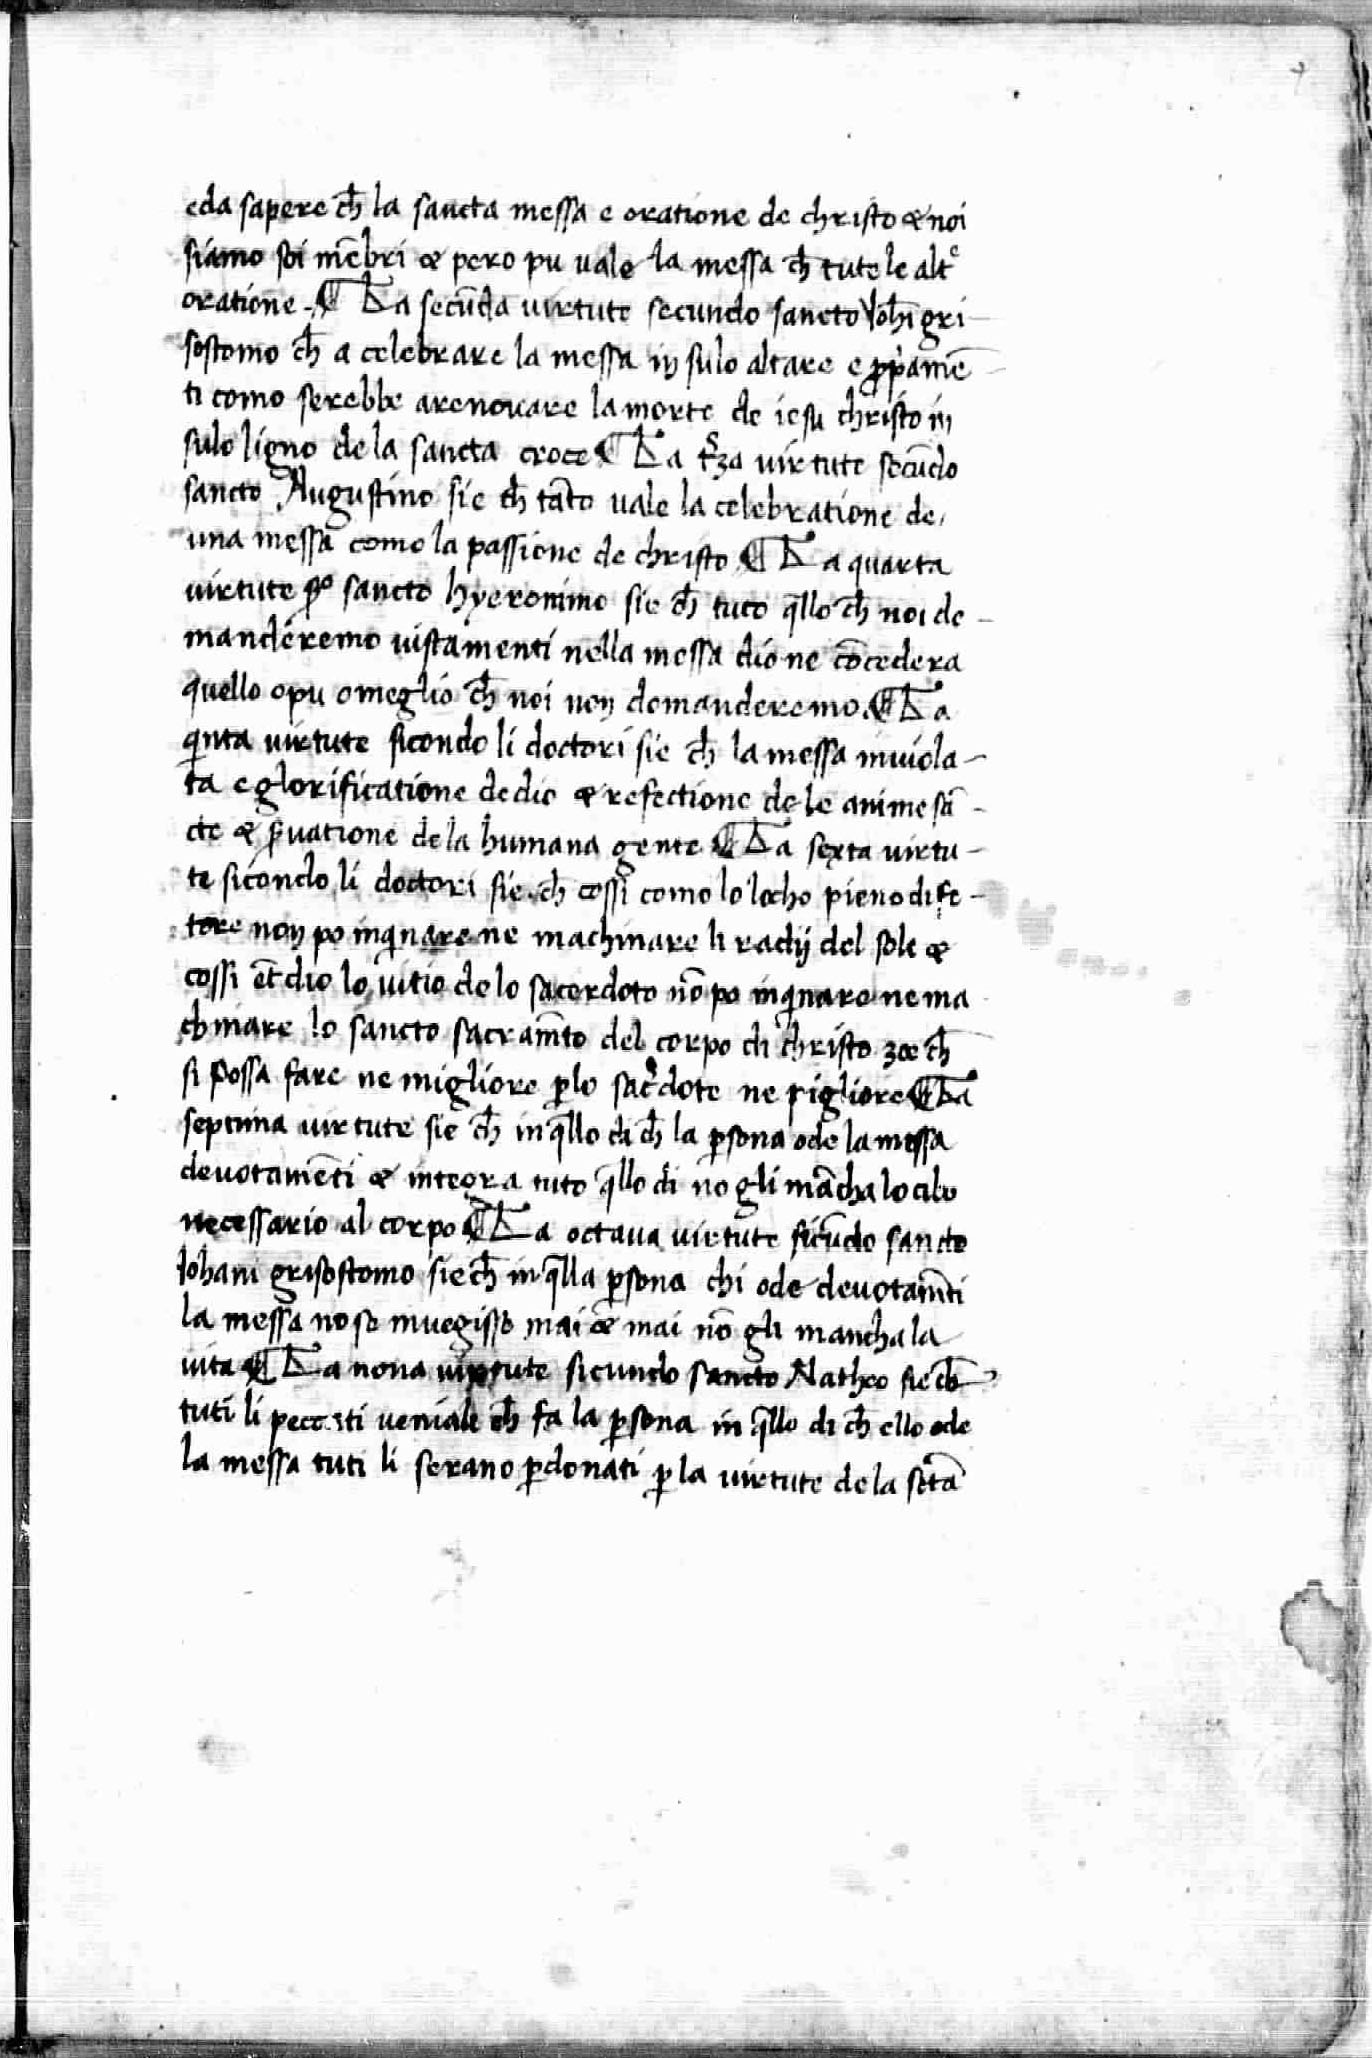 eda sapere ch̄ la sancta messa e oratione de christo & noi
siamo soi mēbri & pero pu vale la messa ch̄ tute le altᵉ
oratione. ¶ La secūda virtute secundo sancto Ioh̄i gri-
sostomo ch̄ a celebrare la messa in sulo altare e ꝓpamē-
ti como serebbe arenouare la morte de iesu christo in
sulo ligno de la sancta croce ¶ La t̄za virtute secūdo
sancto Augustino sie ch̄ tāto vale la celebratione de
una messa como la passione de christo ¶ La quarta
virtute sᵒ sancto hyeronimo sie ch̄ tuto q̄llo ch̄ noi de-
manderemo iustamenti nella messa dio ne cōcedera
quello o pu o meglio ch̄ noi non domanderemo. ¶ La
qinta virtute sicondo li doctori sie ch̄ la messa inviola-
ta e glorificatione de dio & refectione de le anime sā-
cte & ꝑuatione de la humana gente ¶ La sexta virtu-
te sicondo li doctori sie ch̄ cossi como lo locho pieno di fe-
tore non po inqinare ne machinare li radij del sole &
cossi et̄ dio lo vitio de lo sacerdoto nō po inqinare ne ma
chinare lo sancto sacram̄to del corpo di christo zoe ch̄
si possa fare ne migliore ꝑ lo sac̄dote ne pigliore ¶ La
septima virtute sie ch̄ in q̄llo di ch̄ la ꝑsona ode la messa
devotamēti & integra tuto q̄llo di nō gli mācha lo cibo
necessario al corpo ¶ La octava virtute sicūdo sancto
Iohani grisostomo sie ch̄ in q̄lla ꝑsona chi ode devotam̄ti
la messa no se invegisse mai & mai nō gli mancha la
vita ¶ La nona virtute sicundo sancto Matheo sie ch̄
tuti li peccati veniale ch̄ fa la ꝑsona in q̄llo di ch̄ ello ode
la messa tuti li serano ꝑdonati ꝑ la virtute de la sc̄ta